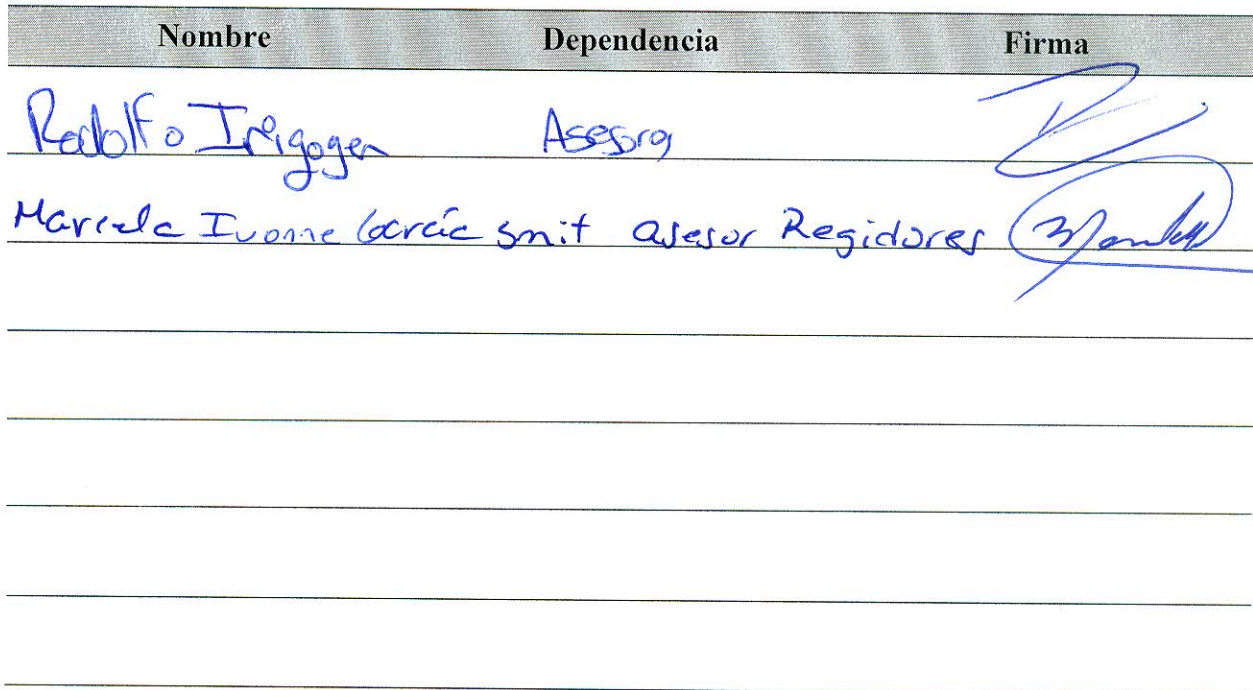 Nombre Dependencia Firma
Rodolfo Irigogen Asesora
Marcela Ivonne García Smit asesor Regidores